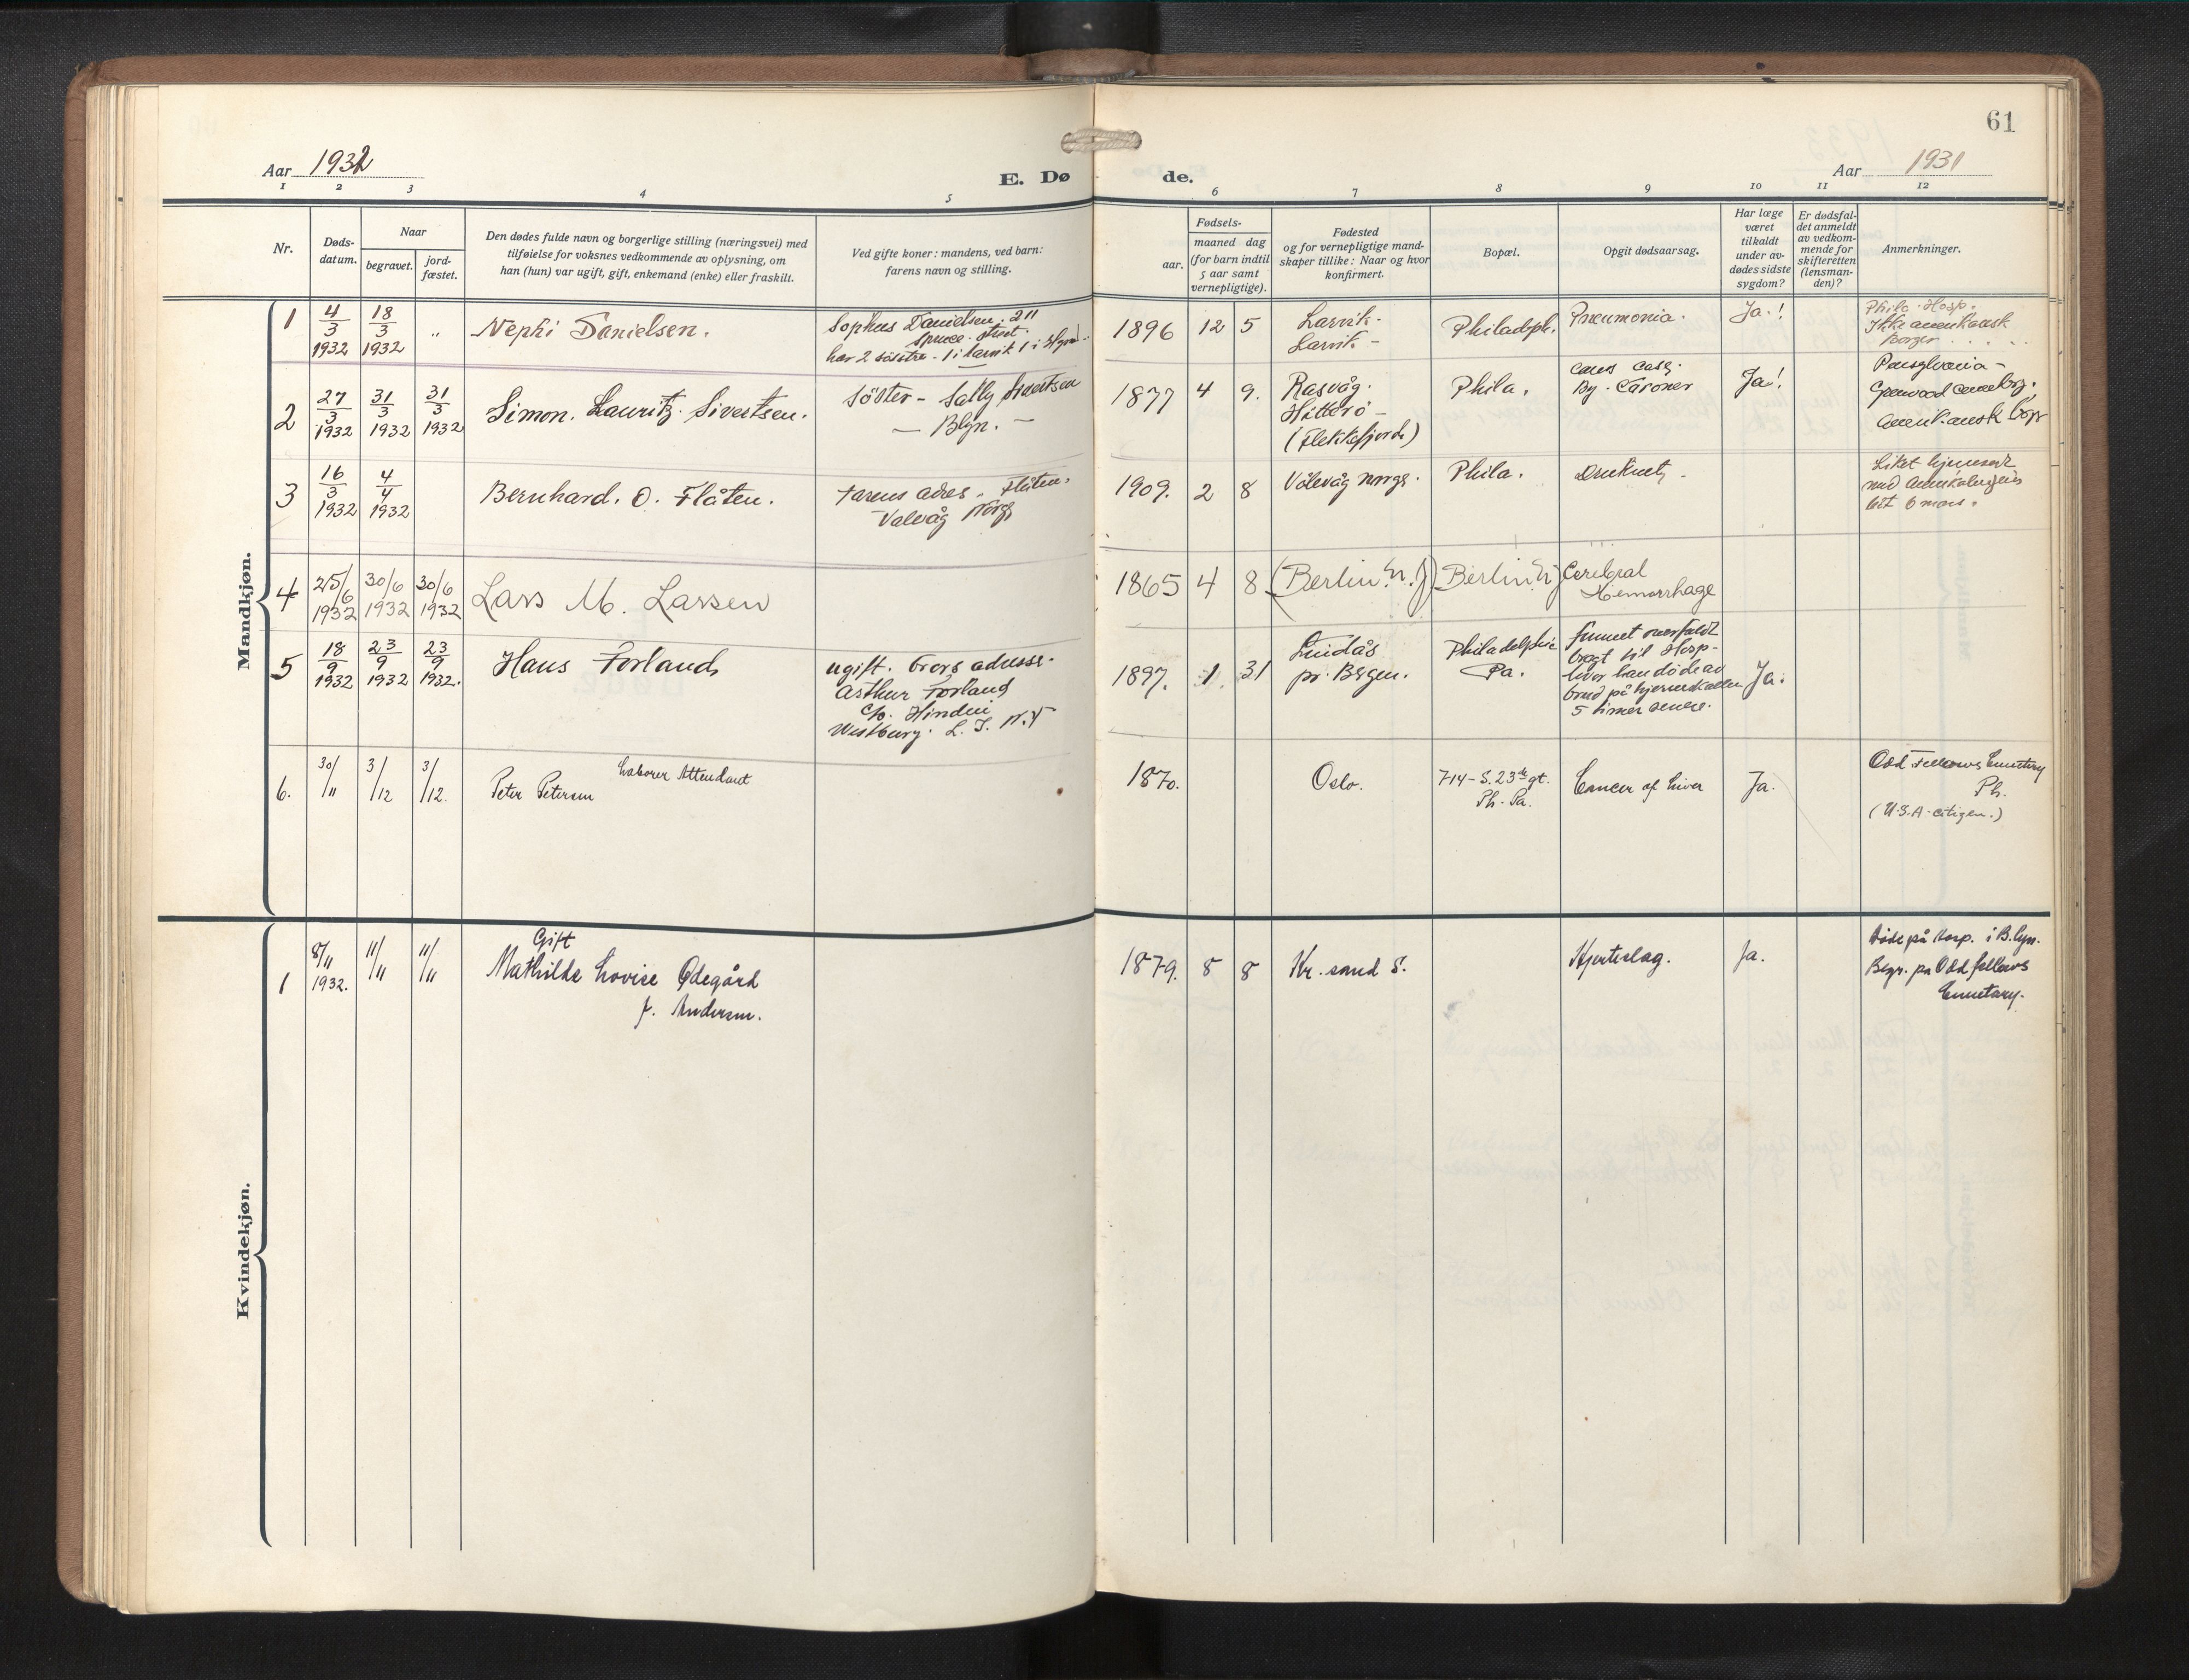 61
Aar 1932
E. Dø
de.
Aar 1931
1 2 3 4 5
6 7 8 9 10 11 12
Nr.
Døds-
datum.
Naar
begravet.
jord-
fæstet.
Den dødes fulde navn og borgerlige stilling (næringsvei) med
tilføielse for voksnes vedkommende av oplysning, om
han (hun) var ugift, gift, enkemand (enke) eller fraskilt.
Ved gifte koner: mandens, ved barn:
farens navn og stilling.
Fødsels-
aar.
maaned dag
(for barn indtil
5 aar samt
vernepligtige).
Fødested
og for vernepligtige mand-
skaper tillike: Naar og hvor
konfirmert.
Bopæl.
Opgit dødsaarsag.
Har læge
været
tilkaldt
under av-
dødes sidste
sygdom?
Er dødsfal-
det anmeldt
av vedkom-
mende for
skifteretten
(lensman-
den)?
Anmerkninger.
Mandkjøn.
1
4/3 1932
18/3 1932
"
Nephi Danielsen.
Sophus Danielsen. 211
Spruce. street.
har 2 søstre - 1 i Larvik 1 i
1896 12 5
Larvik.
Larvik -
Philadph.
Pneumonia.
Ja.!
Phila. Hosp.
Ikke amerikansk
Borger . . . .
2
27/3 1932
31/3 1932
31/3 1932
Simon. Lauritz. Sivertsen.
Söster - Sally Sivertsen
— Blyn. —
1877 4 9.
Rasvåg.
Hitterö -
(Flekkefjord)
Phila.
By. Coroner
Ja!
Pensylvania -
Amerikansk
3
16/3 1932
4/4 1932
Bernhard. O. Flåten.
Farens adres. Flåten.
Valvåg Norge
1909. 2 8
Vålevåg Norge.
Phila.
Druknet -
Liket hjemsent
med
6 mars.
4
25/6 1932
30/6 1932
30/6 1932
Lars M. Larsen
1865 4 8
(Berlin N. J)
Berlin N J
Cerebral
Hemorrhage
5
18/9 1932
23/9 1932
23/9 1932.
Hans Forland
ugift. Brors adresse.
Arthur Forland
c/o. Hindin
Westbury. L. I. N.Y
1897. 1 31
Lindås
pr. Bergen.
Philadelphia
Pa.
funnet overfaldt
bragt til Hosp-
hvor han døde av
brud på hjerneskallen
5 timer senere.
Ja.
6.
30/11
3/12
3/12.
Laborer Attendant
Peter Petersen
1870.
Oslo.
714 - S. 23de gt.
Ph. Pa.
Cancer of Liver
Ja.
Odd Fellows Cemetary
Ph.
(U.S.A. citizen.)
Kvindekjøn.
1
8/11 1932.
11/11
11/11
Gift
Mathilde Lovise Ødegård
f. Andersen.
1879. 8 8
Kr. sand S.
Hjerteslag.
Ja.
Døde på Hosp. i B.lyn.
Begr. på Odd fellows
Cemetary.